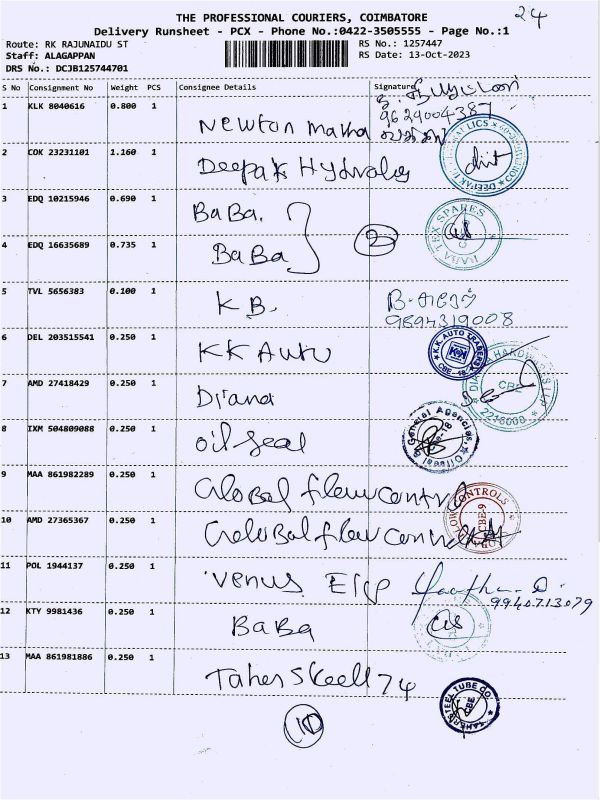 THE PROFESSIONAL COURIERS, COIMBATORE
24
Delivery Runsheet - PCX - Phone No.:0422-3505555 - Page No.:1
Route: RK RAJUNAIDU ST
RS No.: 1257447
Staff: ALAGAPPAN
RS Date: 13-Oct-2023
DRS No.: DCJB125744701
S No Consignment No Weight PCS Consignee Details Signature
1 KLK 8040616 0.800 1 Newton
9629004387
2 COK 23231101 1.160 1 Deepak
3 EDQ 10215946 0.690 1 BaBa.
BABA TEX SPARES
2
4 EDQ 16635689 0.735 1 BaBa
5 TVL 5656383 0.100 1 KB.
9894319008
6 DEL 203515541 0.250 1 KK Auto
K.K. AUTO TRADERS
CBE - 18
7 AMD 27418429 0.250 1 Diana
CBE
8 IXM 504809088 0.250 1 oil seal
General Agencies
9 MAA 861982289 0.250 1 Global flow control
CONTROLS
CBE-9
10 AMD 27365367 0.250 1 Global flow
11 POL 1944137 0.250 1 Venus
9940713079
12 KTY 9981436 0.250 1 BaBa
13 MAA 861981886 0.250 1 Taher
STEEL TUBE CO.
CBE
10